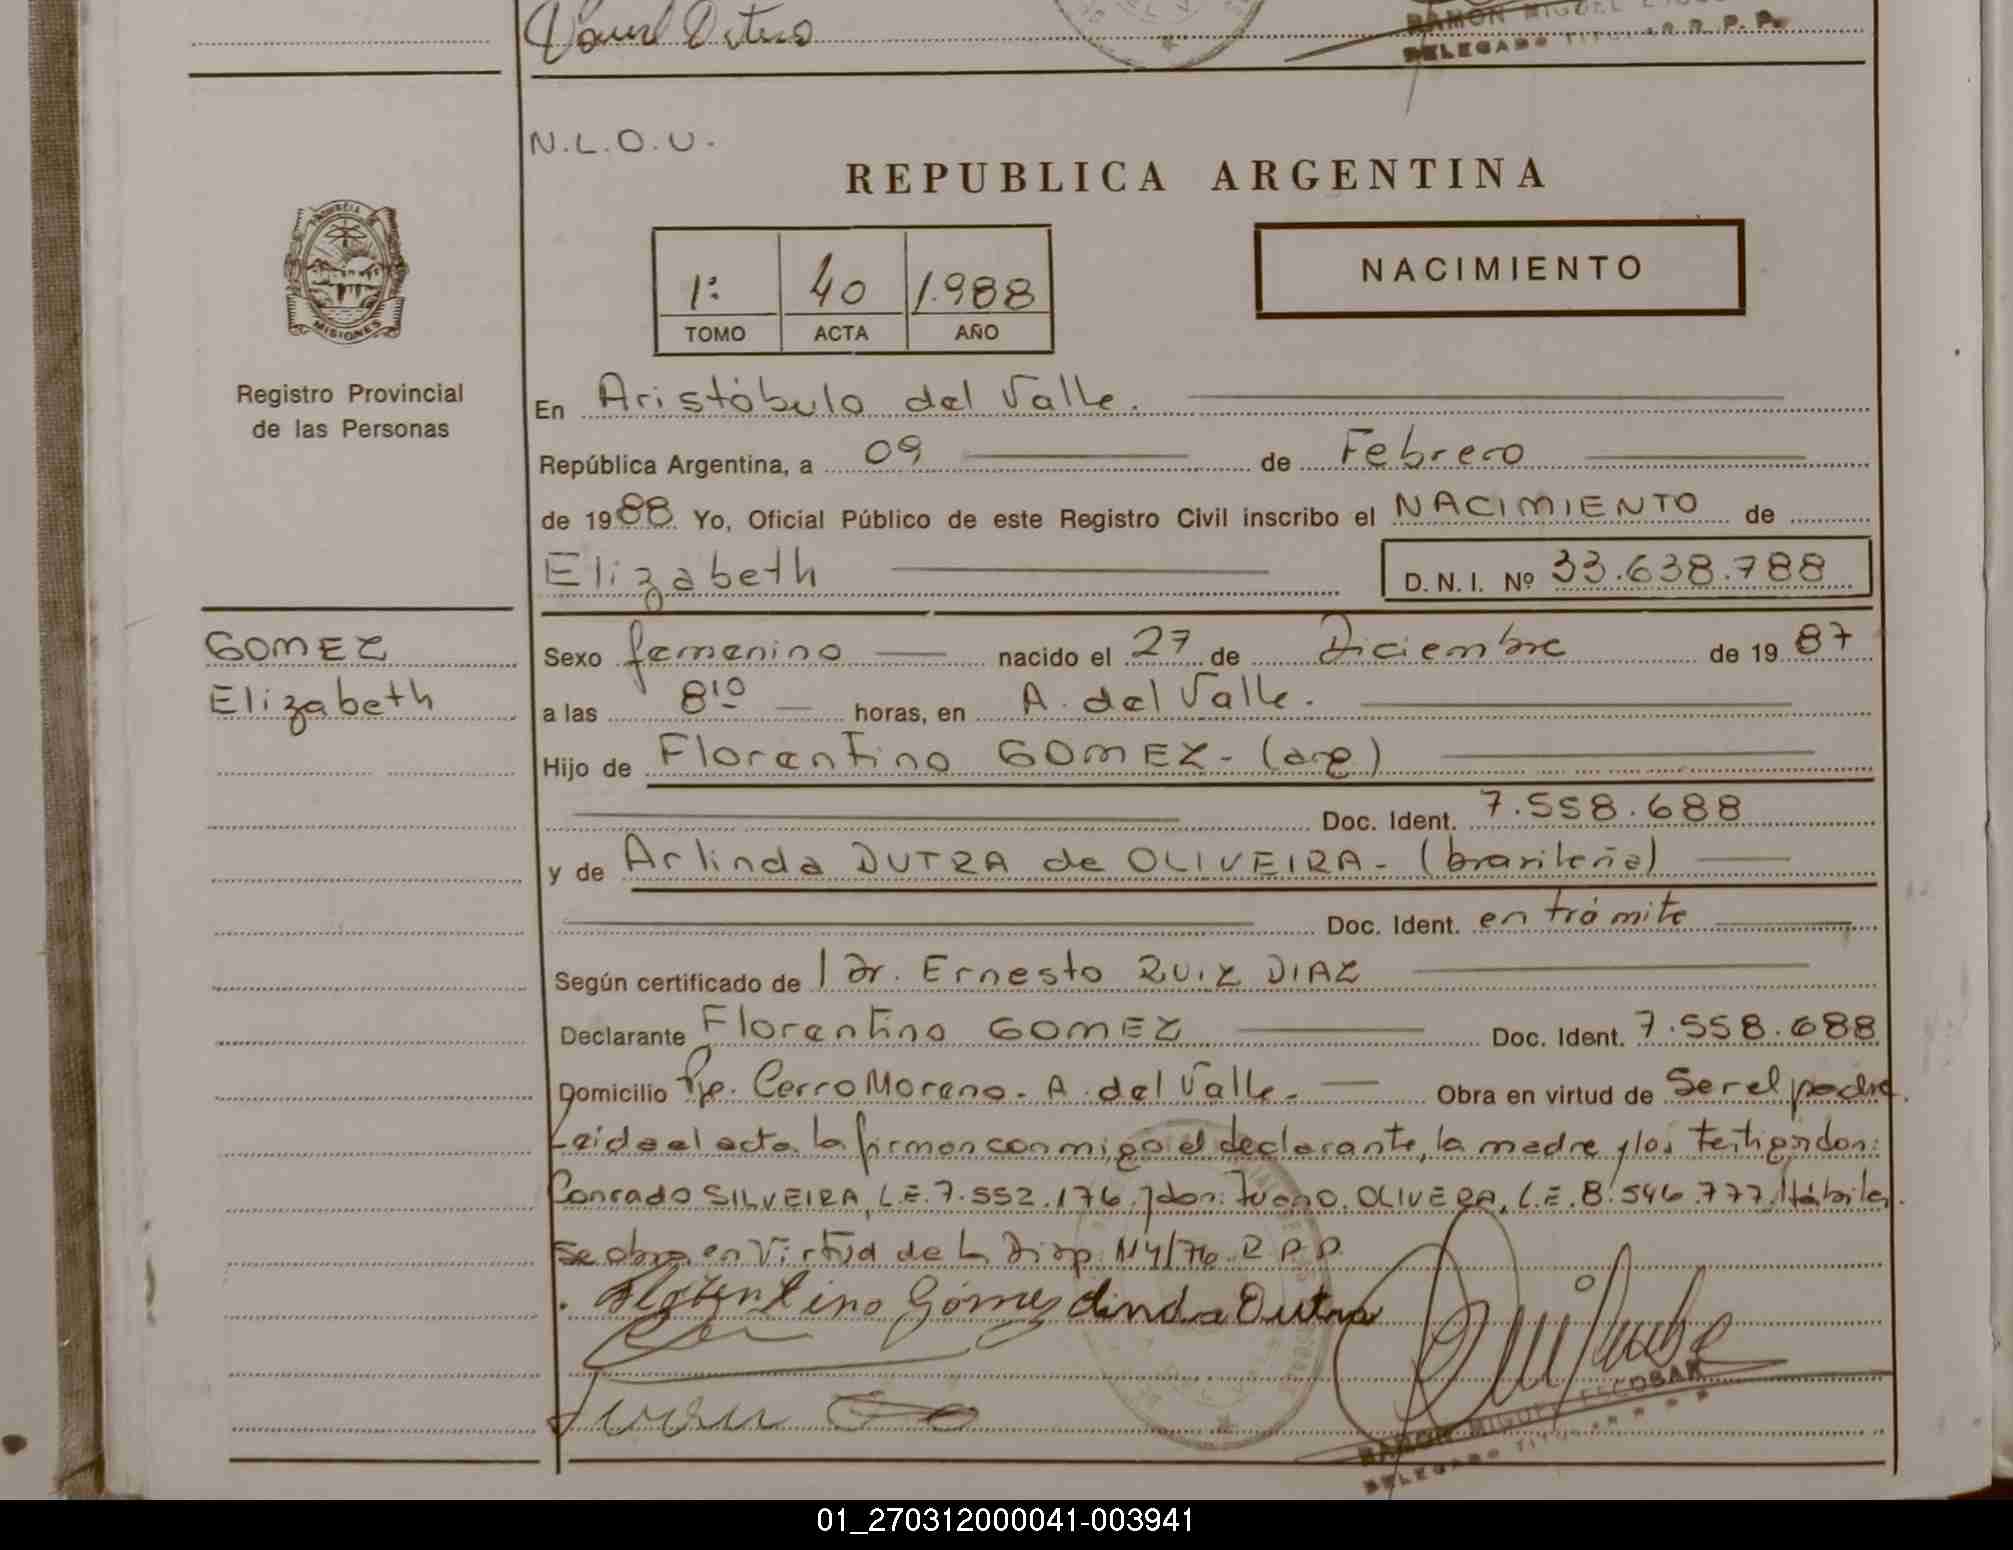 RAMON MIGUEL
DELEGADO TITULAR R. P. P.
N.L.O.U.
REPUBLICA ARGENTINA
1º 40 1.988
TOMO ACTA AÑO
NACIMIENTO
PROVINCIA
MISIONES
Registro Provincial
de las Personas
En Aristóbulo del Valle.
República Argentina, a 09 de Febrero
de 1988 Yo, Oficial Público de este Registro Civil inscribo el NACIMIENTO de
Elizabeth D. N. I. Nº 33.638.788
GOMEZ
Elizabeth
Sexo femenino nacido el 27 de Diciembre de 1987
a las 8¹⁰ horas, en A. del Valle.
Hijo de Florentino GOMEZ - (arg)
Doc. Ident. 7.558.688
y de Arlinda DUTRA de OLIVEIRA - (brasileña)
Doc. Ident. en trámite
Según certificado de Dr. Ernesto RUIZ DIAZ
Declarante Florentino GOMEZ Doc. Ident. 7.558.688
Domicilio Pje. Cerro Moreno - A. del Valle. Obra en virtud de Ser el padre.
Leida el acta la firman conmigo el declarante, la madre y los testigos don:
Conrado SILVEIRA, L.E. 7.552.176 y don: OLIVERA, L.E. 8.546.777 Hábiles.
Se obra en Virtud de la Disp. 114/76 R.P.P.
Florentino Gómez Linda Dutra
RAMON MIGUEL ESCOBAR
DELEGADO TITULAR R P P
01_270312000041-003941